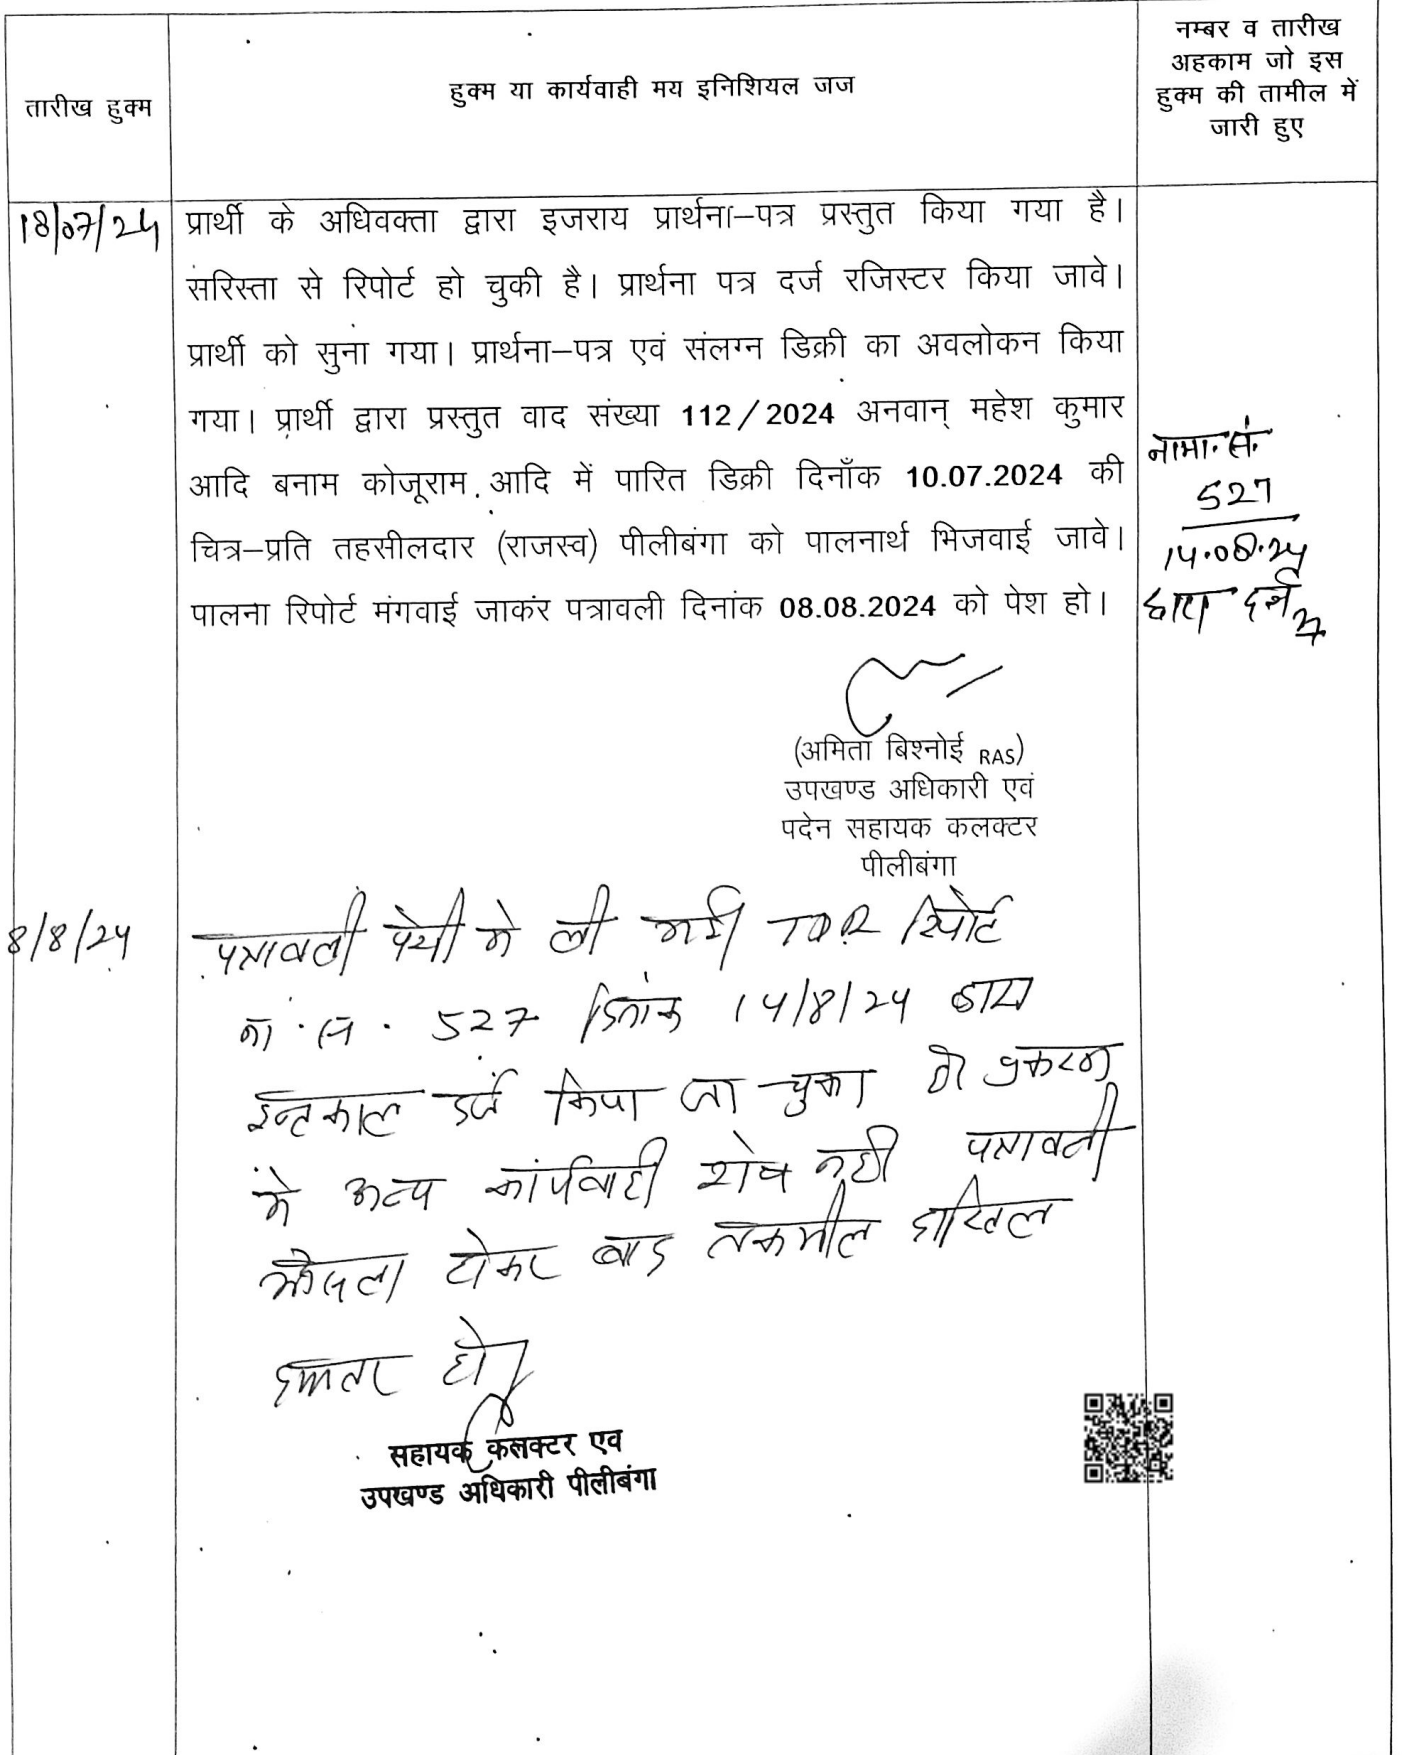 तारीख हुक्म
हुक्म या कार्यवाही मय इनिशियल जज
नम्बर व तारीख
अहकाम जो इस
हुक्म की तामील में
जारी हुए
18/07/24
प्रार्थी के अधिवक्ता द्वारा इजराय प्रार्थना–पत्र प्रस्तुत किया गया है।
सरिस्ता से रिपोर्ट हो चुकी है। प्रार्थना पत्र दर्ज रजिस्टर किया जावे।
प्रार्थी को सुना गया। प्रार्थना–पत्र एवं संलग्न डिक्री का अवलोकन किया
गया। प्रार्थी द्वारा प्रस्तुत वाद संख्या 112/2024 अनवान् महेश कुमार
आदि बनाम कोजूराम आदि में पारित डिक्री दिनाँक 10.07.2024 की
चित्र–प्रति तहसीलदार (राजस्व) पीलीबंगा को पालनार्थ भिजवाई जावे।
पालना रिपोर्ट मंगवाई जाकर पत्रावली दिनांक 08.08.2024 को पेश हो।
नामा. सं.
527
14.08.24
द्वारा दर्ज
(अमिता बिश्नोई RAS)
उपखण्ड अधिकारी एवं
पदेन सहायक कलक्टर
पीलीबंगा
8/8/24
पत्रावली पेशी मे ली गई TDR रिपोर्ट
ना. स. 527 दिनांक 14/8/24 द्वारा
इन्तकाल दर्ज किया जा चुका है प्रकरण
मे अन्य कार्यवाही शेष नही पत्रावली
फैसला होकर बाद तकमील दाखिल
दफ्तर हो।
सहायक कलक्टर एव
उपखण्ड अधिकारी पीलीबंगा